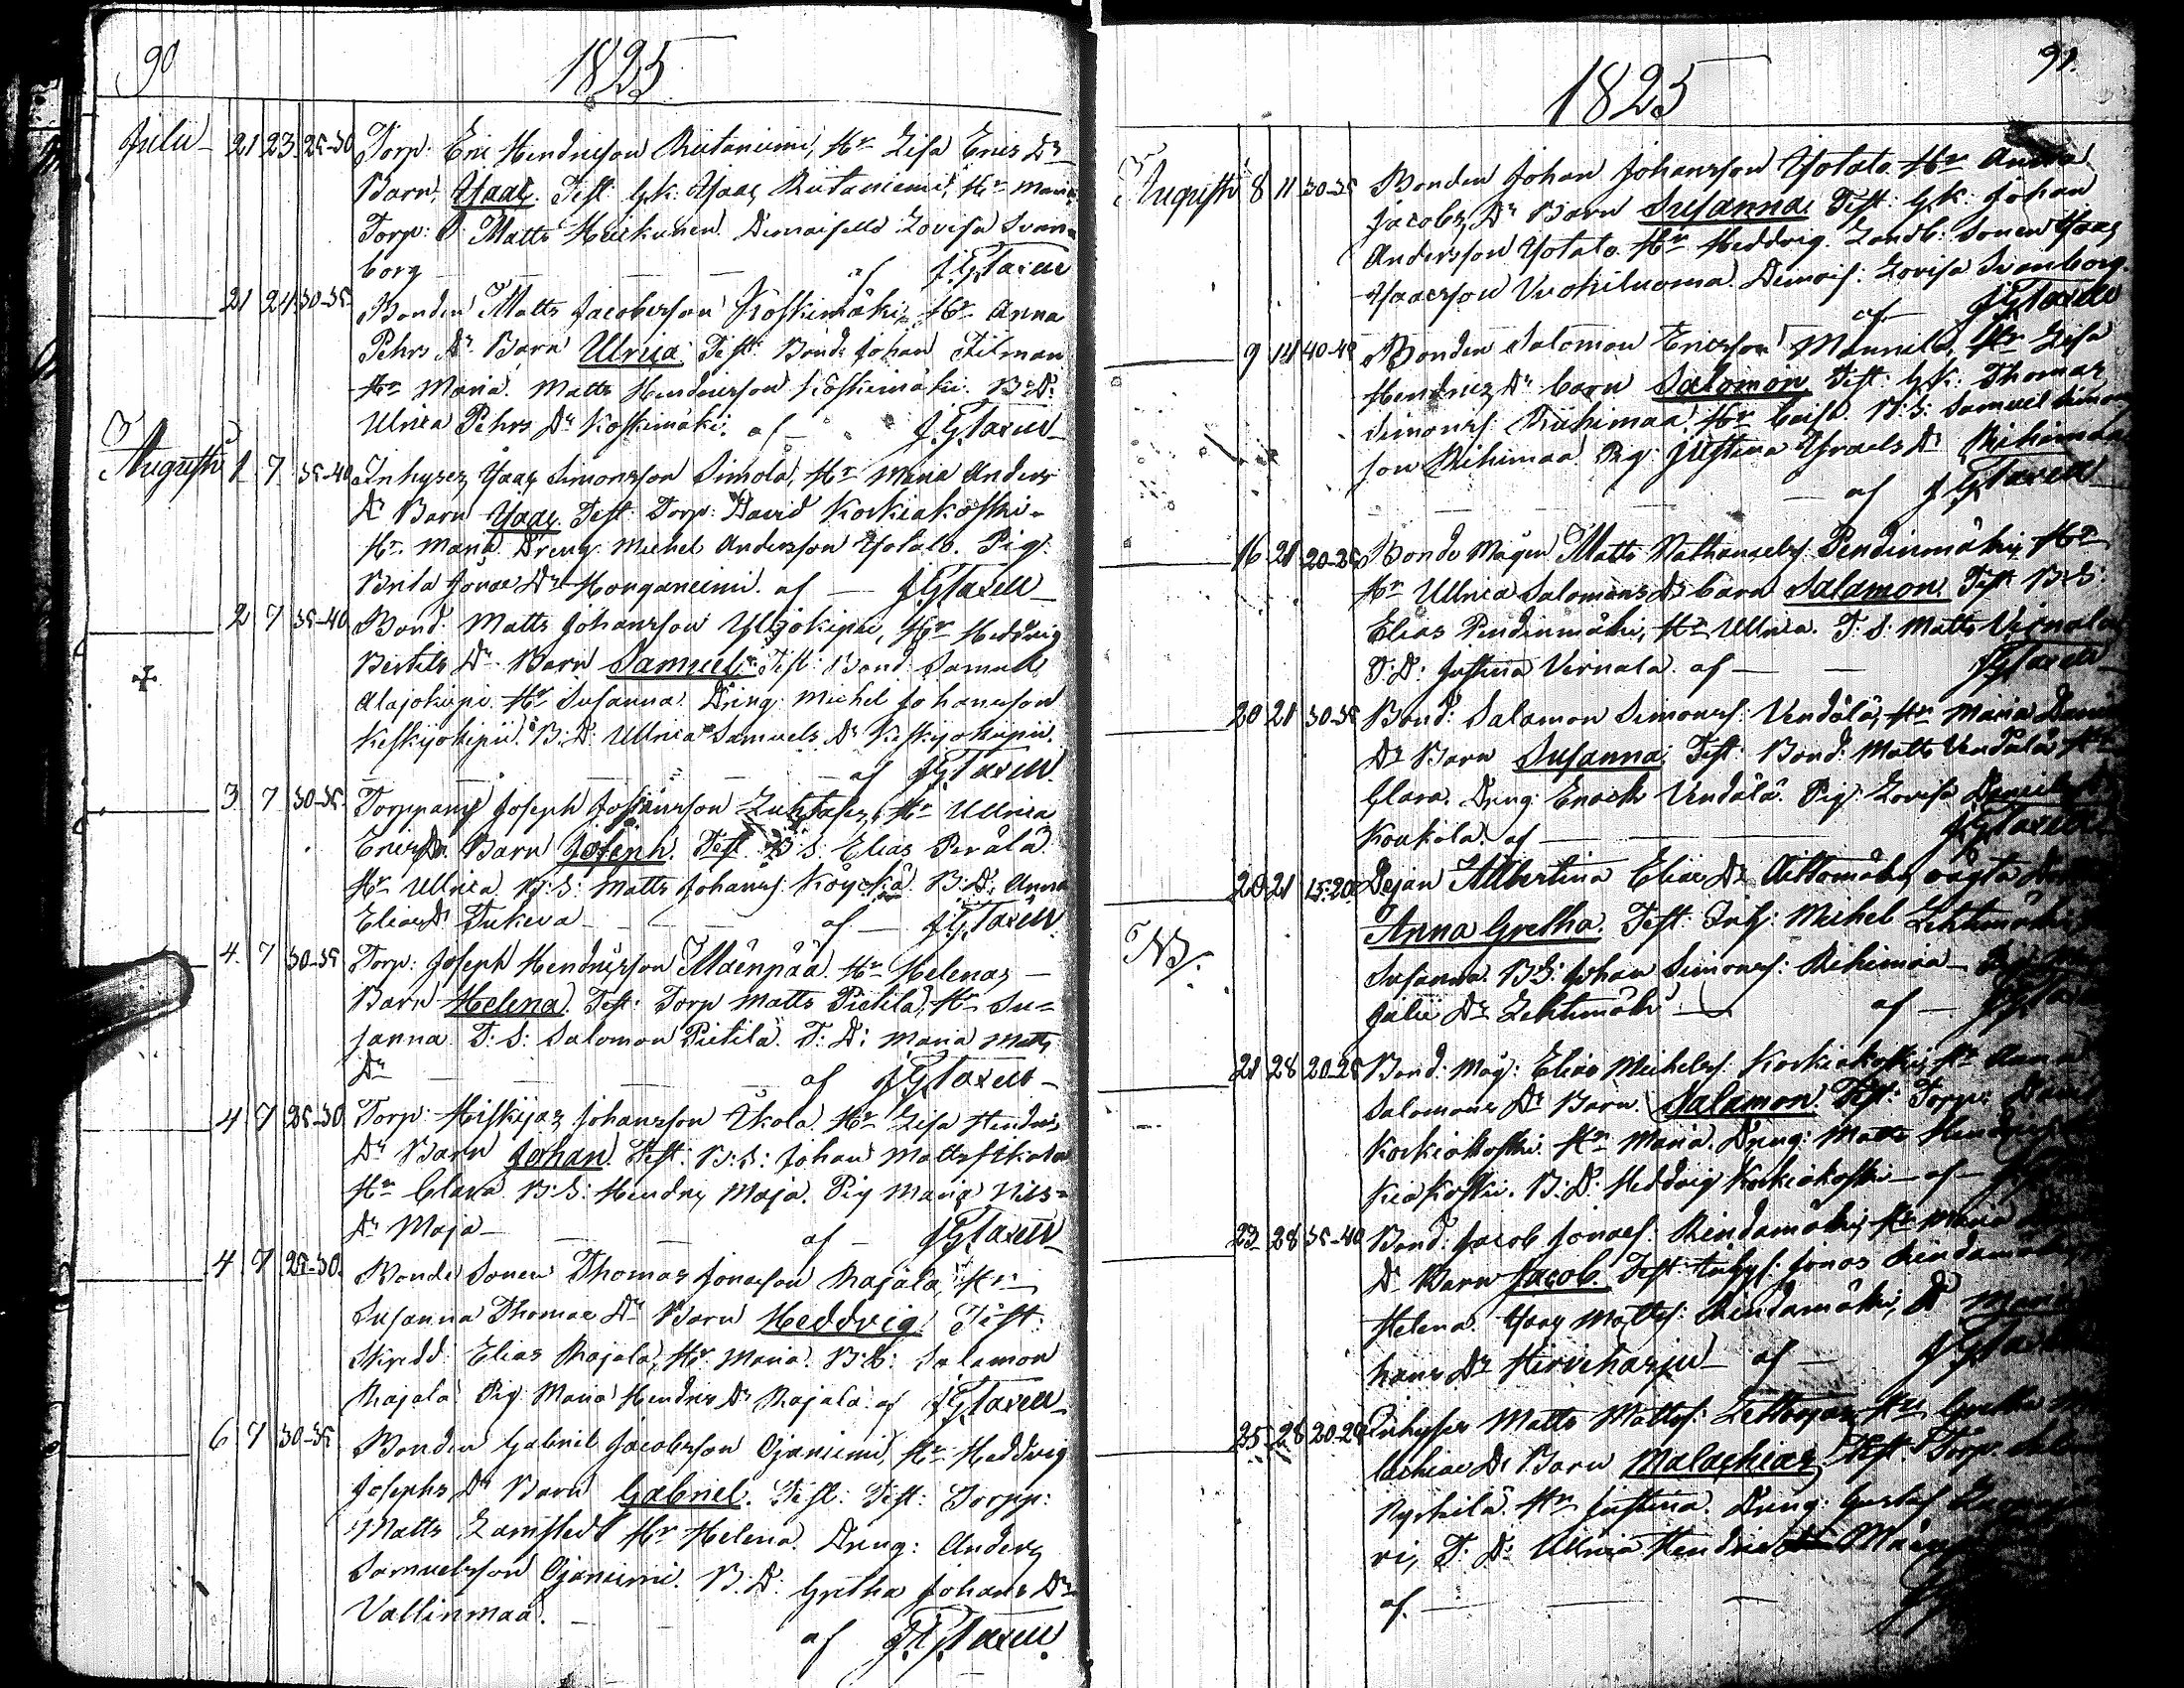 90
1825
Julii 21 23 25-30 Torp: Eric Hendricsson Riitaniemi, Hr Lisa Erics Dr
Barn: Ysaac. Test: G.k. Ysaac Riitaniemi, Hr Maria,
Torp: S. Matts Heickunen. Demoiselle Lovisa Svan=
borg — — — af JGTaxell
21 24 30-35 Bonden Matts Jacobsson Koskimäki, Hr Anna
Pehrs Dr Barn Ulrica. Test: Bond: Johan Filman
Hr Maria. Matts Hendricsson Koskimäki. B:D:
Ulrica Pehrs Dr Koskimäki. af — JGTaxell
Augusti 1 7 35-40 Inhyses Ysaac Simonsson Simola, Hr Maria Anders
Dr Barn Ysaac. Test: Torp: David Korkiakoski
Hr Maria. Dreng Michel Andersson Yotalo. Pig:
Brita Jonae Dr Honganiemi. af — JGTaxell
2 7 35-40 Bond: Matts Johansson Ylijokipii, Hr Heddvig
Bertils Dr Barn Samuel. Test: Bond: Samuel
Alajokipii Hr Susanna. Dräng: Michel Johansson
Keskijokipii. B:D: Ullrica Samuels Dr Keskijokipii.
— — — af JGTaxell
3 7 30-35 Torppans Joseph Hr Ullrica
Erics Dr Barn Joseph. Test: B:S: Elias Perälä
Hr Ullrica B:S: Matts Johanss: Köyckä. B:D: Anna
Eliae Dr Tukeva — af — JGTaxell
4 7 30-35 Torp: Joseph Hendricsson Mäenpää. Hr Helena,
Barn Helena. Test: Torp Matts Pietilä, Hr Su=
sanna T:S: Salomon Pietilä. T:D: Maria Matts
Dr — — af JGTaxell
4 7 25-30 Torp: Hiskijas Johansson Ikola Hr Lisa Hendrics
Dr Barn Johan. Test: B:S: Johan Mattss Ikola
Hr Clara B:S: Hendric Maja. Pig Maria Nils=
Dr Maja — — af — JGTaxell
4 7 25-30 Bonde Sonen Thomas Jonasson Rajala, Hr
Susanna Thomae Dr Barn Heddvig. Test:
Skredd: Elias Rajala, Hr Maria. B:S: Salamon
Rajala Pig Maria Hendrics Dr Rajala af JGTaxell
6 7 30-35 Bonden Gabriel Jacobsson Ojaniemi, Hr Heddvig
Josephs Dr Barn Gabriel. Test: Test: Torpp:
Matts Zamstedt Hr Helena. Dreng: Anders
Samuelsson Ojaniemi. B:D: Gretha Johans Dr
Vallinmaa. — af JGTaxell.
91.
1825
Augusti 8 11 30-35 Bonden Johan Johansson Yotalo. Hr Anna
Jacobs Dr Barn Susanna. Test: G.k: Johan
Andersson Yotalo Hr Heddvig. Landb: Sonen Ysaac
Ysacsson Vuokiluoma. Demois: Lovisa Svanborg.
af — JGTaxell
9 14 40-45 Bonden Salomon Ericsson Mannila, Hr Lisa
Hendrics Dr barn Salomon Test: G.K: Thomas
Simonss: Riihimaa, Hr Caisa. B:S: Samuel Simons
son Riihimaa. Pig: Justina Ysraels Dr Riihimaa
— af JGTaxell
16 21 20-25 Bonde Mågen Matts Nathanaelss: Pendinmäki, Hr
Hr Ullrica Salomons Dr barn Salamon. Test: B:S:
Elias Pendinmäki, Hr Ullrica. T:S: Matts Virnala
T:D: Justina Virnala. af — — JGTaxell
20 21 30-35 Bond: Salamon Simonss: Vendälä, Hr Maria
Dr Barn Susanna. Test: Bond: Matts Vendälä Hr
Clara. Dreng: Enoch Vendälä. Pig: Lovisa
Koukola. af — JGTaxell
20 21 15-20 Pejan Albertina Eliae Dr Aittomäki, oägta
Anna Gretha. Test: Inh: Michel Lehtimäki
NB.
Susanna. B:S: Johan Simonss: Riihimaa —
Julii Dr Lehtimäki — af —
21 28 20-25 Bond: Måg: Elias Michelss: Korkiakoski, Hr Anna
Salomons Dr Barn Salamon. Test: Torp:
Korkiakoski Hr Maria. Dreng: Matts
kiakoski. B:D: Heddvig Korkiakoski — af —
23 28 35-40 Bond: Jacob Jonaes: Rindamäki, Hr Maria
Dr Barn Jacob. Test: Inhys: Jonas Rindamäki
Helena. Ysaac Mattss: Rindamäki, D. Maria
hans Dr Hirviharju — af — JGTaxell
25 28 20-25 Inhyses Matts Mattss: Hr Gretha
lachiae Dr Barn Malachias. Test: Torp:
Hr Justina. Dreng: Gustaf
ri, T:D: Ullrica Hendrics
af. — —